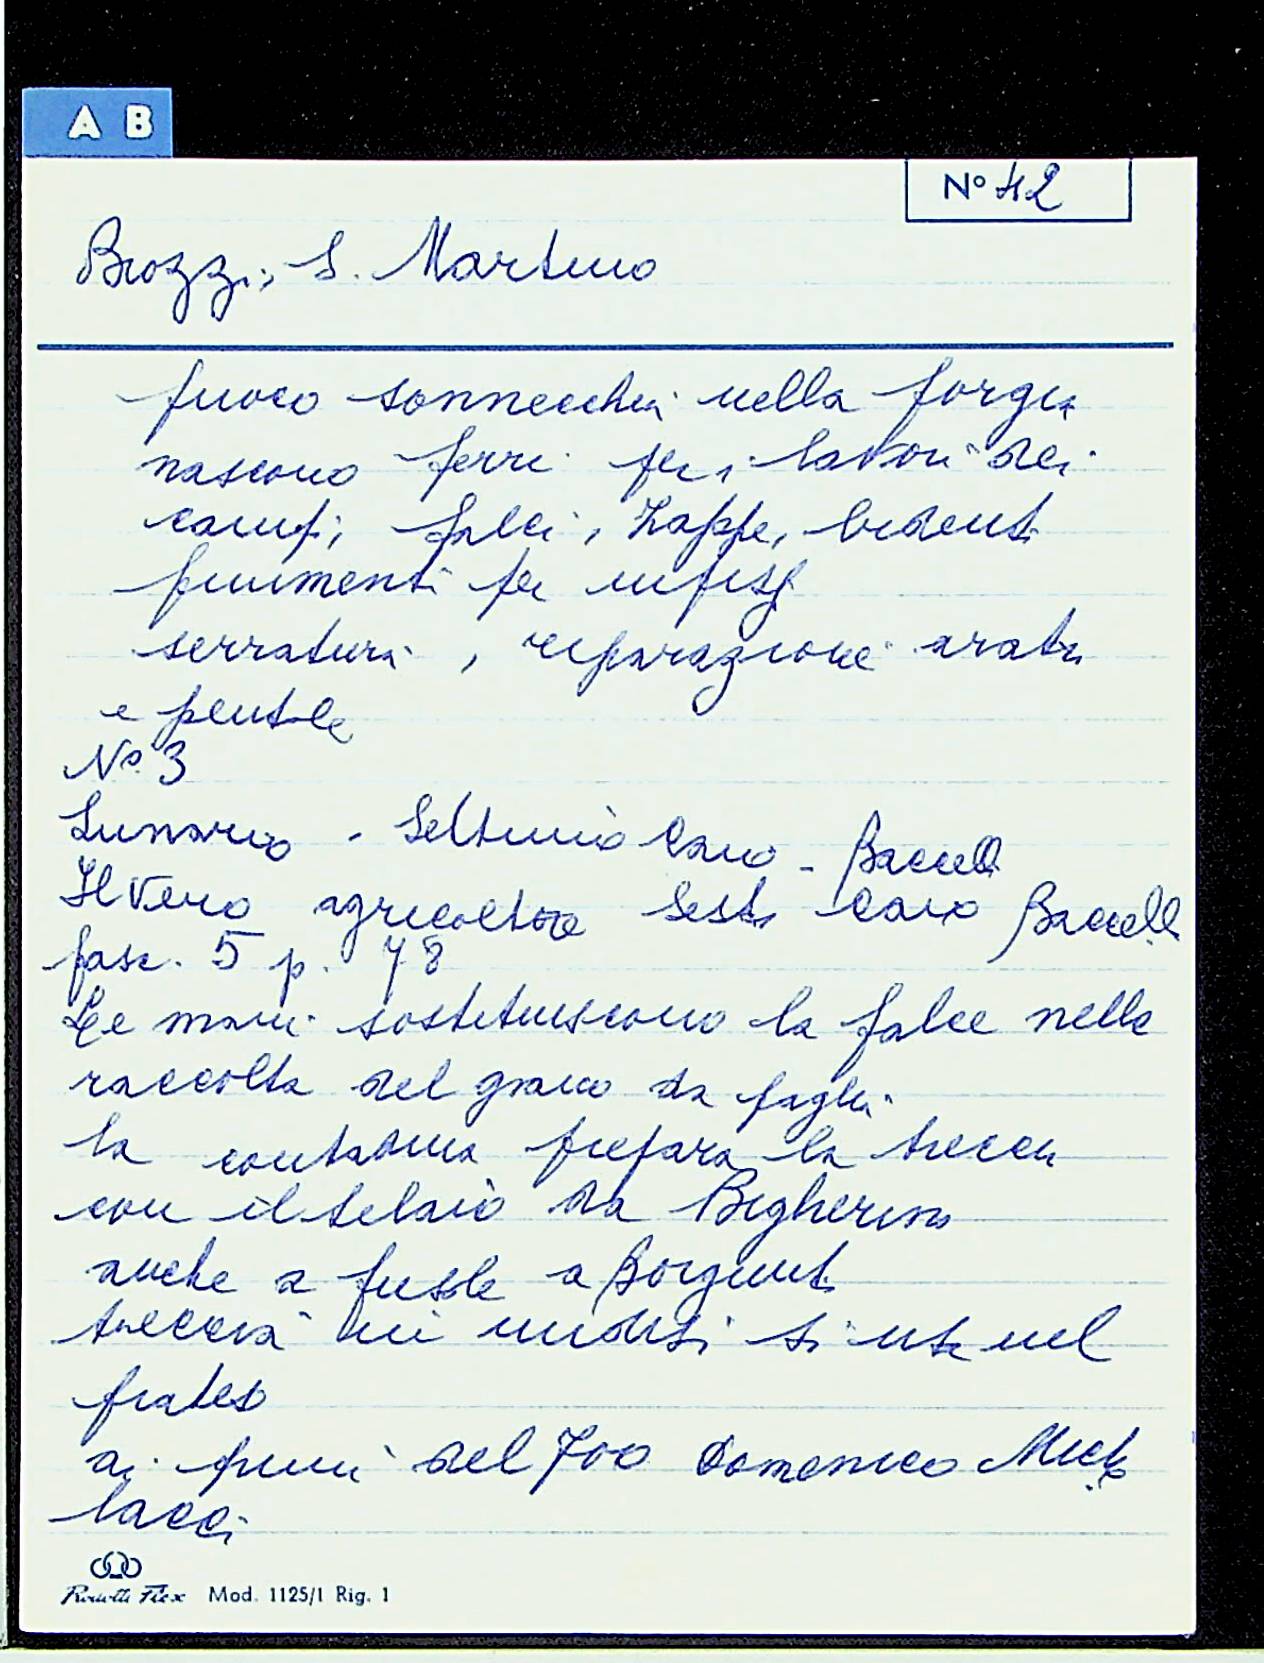 A B
Nº 42
Brozzi, S. Martino
fuoco sonnecchia nella forgia
nascono ferri per i lavori dei
campi, falci, zappe, bidenti
finimenti per infissi
serrature, riparazione aratri
e pentole
Nº 3
Lunario - Settimio Caio - Baccelli
Il Vero agricoltore Sesto Caio Baccelli
fasc. 5 p. 78
Le mani sostituiscono la falce nella
raccolta del grano da paglia
la contadina prepara la treccia
con il telaio da Bigherino
anche a Fiesole a Borgunto
treccia nei
ai primi del 700 Domenico Miche
lacci
Mod. 1125/1 Rig. 1